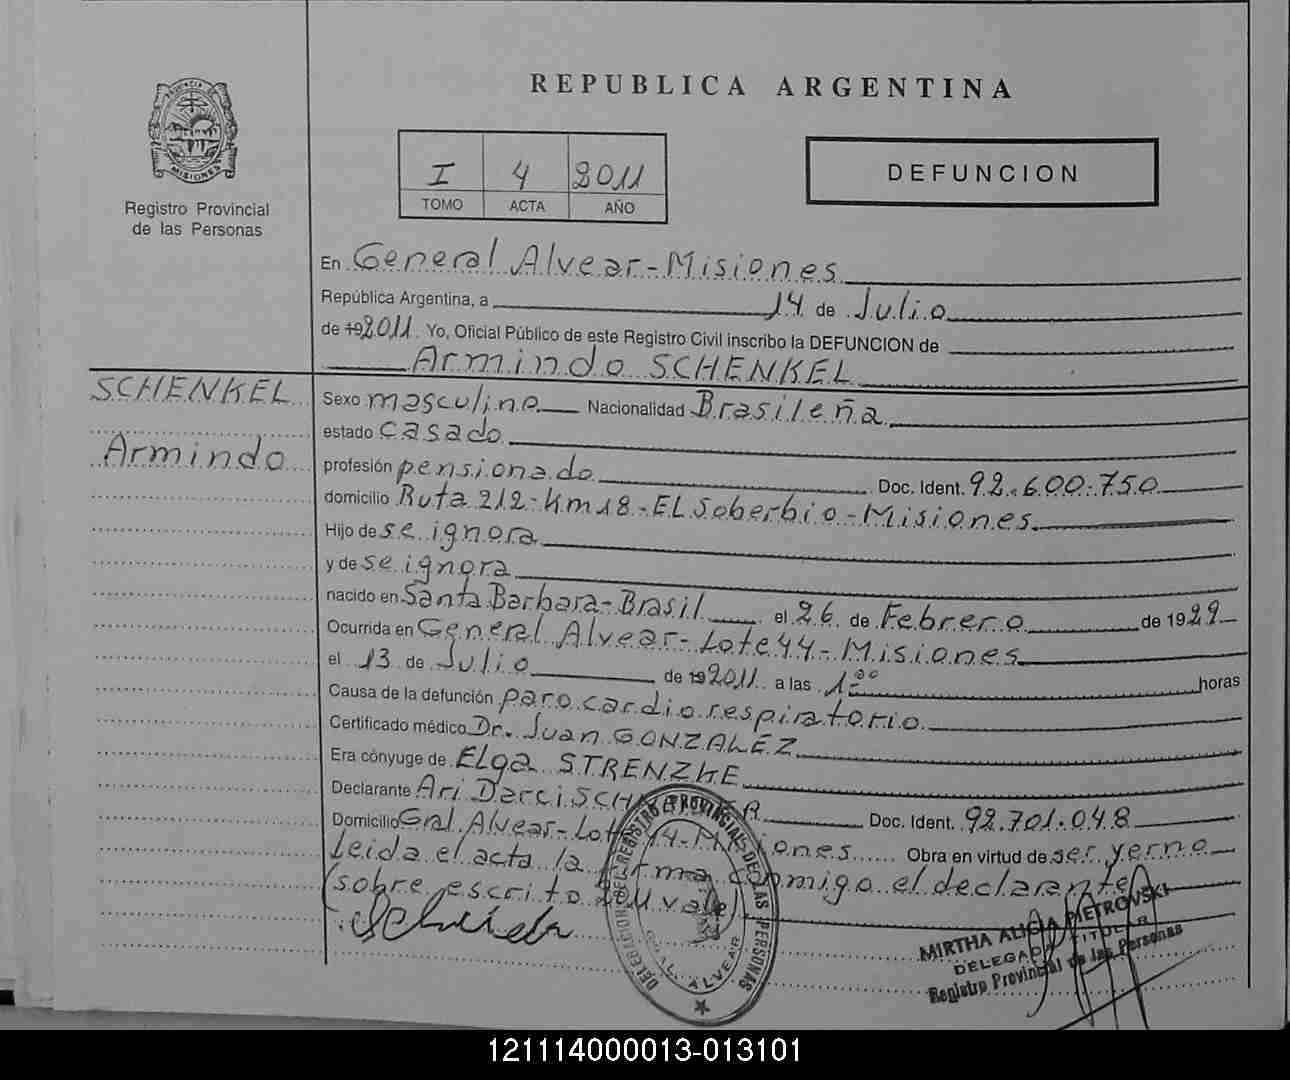 REPUBLICA ARGENTINA
PROVINCIA DE
MISIONES
Registro Provincial
de las Personas
I 4 2011
TOMO ACTA AÑO
DEFUNCION
En General Alvear-Misiones
República Argentina, a 14 de Julio
de 192011 Yo, Oficial Público de este Registro Civil inscribo la DEFUNCION de
Armindo SCHENKEL
SCHENKEL
Armindo
Sexo masculino Nacionalidad Brasileña
estado casado
profesión pensionado Doc. Ident. 92.600.750
domicilio Ruta 212-Km18-EL Soberbio-Misiones
Hijo de se ignora
y de se ignora
nacido en Santa Barbara-Brasil el 26 de Febrero de 1929
Ocurrida en General Alvear-Lote 44-Misiones
el 13 de Julio de 192011 a las 1ºº horas
Causa de la defunción paro cardio respiratorio
Certificado médico Dr. Juan GONZALEZ
Era cónyuge de Elga STRENZKE
Declarante Ari Darci Doc. Ident. 92.701.048
Domicilio Gral. Alvear-Lote 44-Misiones Obra en virtud de ser yerno
Leida el acta la firma conmigo el declarante
(sobre escrito 2011 vale)
DELEGACION DEL REGISTRO PROVINCIAL DE LAS PERSONAS
GRAL. ALVEAR
MIRTHA ALICIA PIETROVSKI
DELEGADA TITULAR
Registro Provincial de las Personas
121114000013-013101